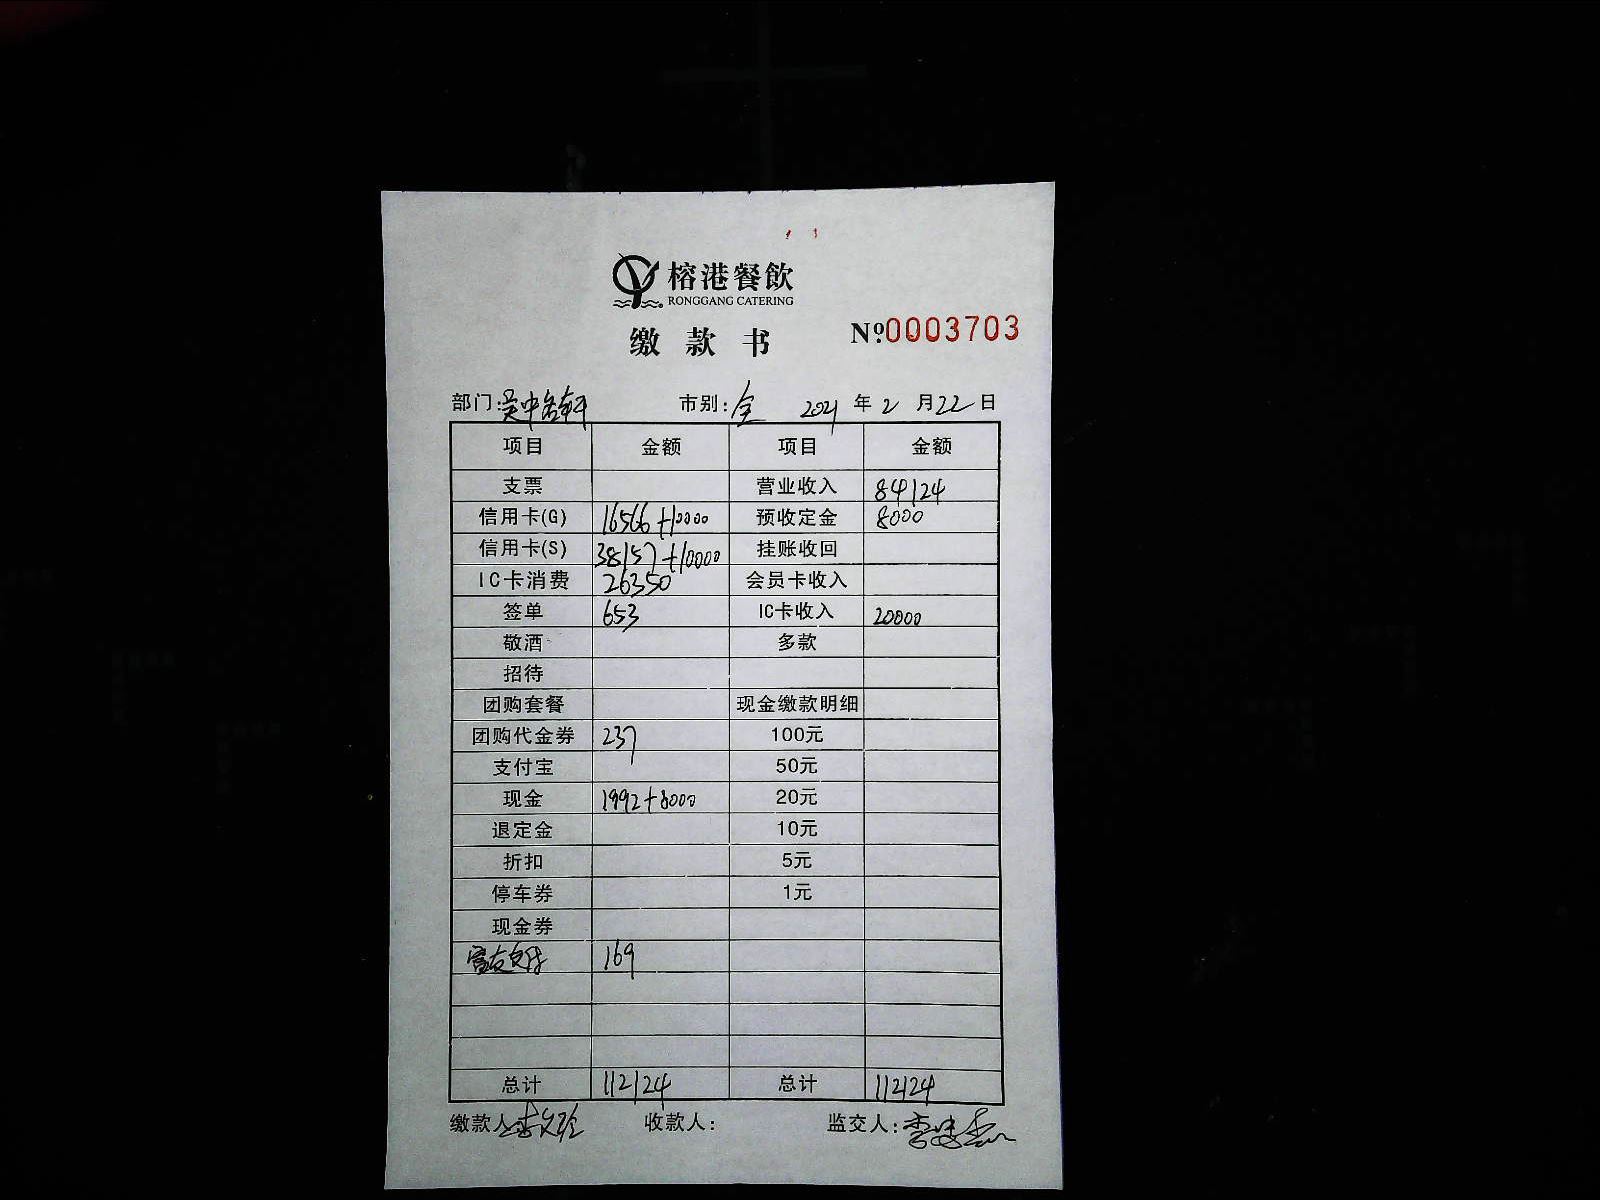 榕港餐飲
RONGGANG CATERING
缴款书 №0003703
部门:吴中名轩 市别:全 2021年2月22日
项目 金额 项目 金额
支票 营业收入 84124
信用卡(G) 16566+10000 预收定金 8000
信用卡(S) 38157+10000 挂账收回
IC卡消费 26350 会员卡收入
签单 653 IC卡收入 20000
敬酒 多款
招待
团购套餐 现金缴款明细
团购代金券 237 100元
支付宝 50元
现金 1992+8000 20元
退定金 10元
折扣 5元
停车券 1元
现金券
富友支付 169
总计 112124 总计 112124
缴款人: 收款人: 监交人: